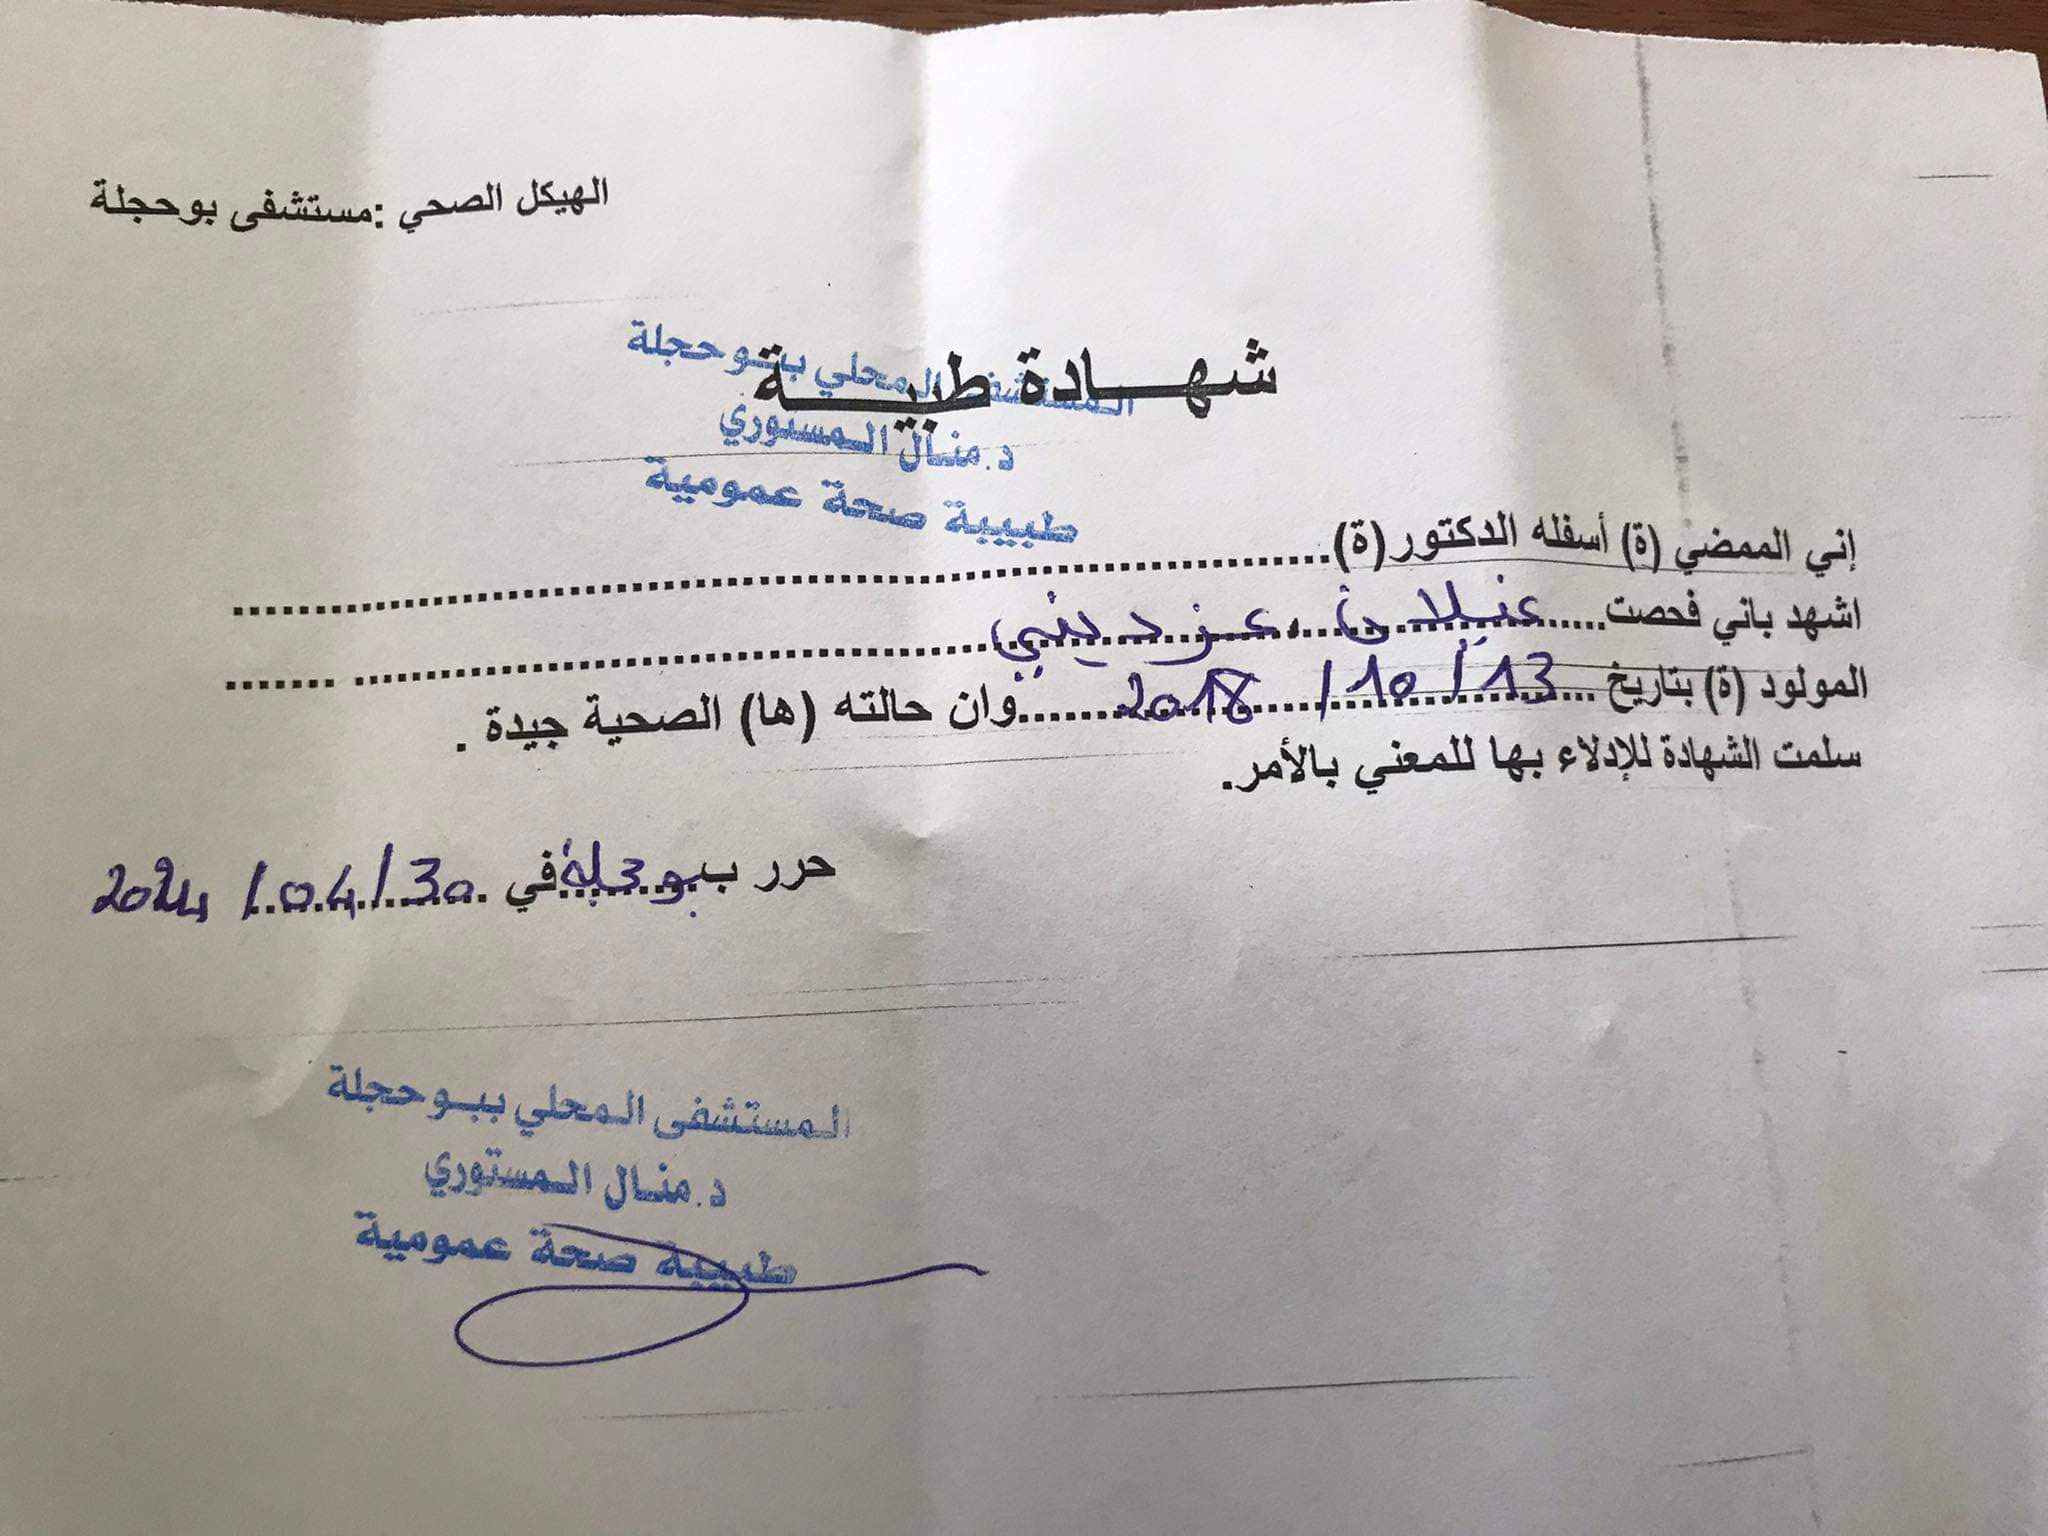 الهيكل الصحي :مستشفى بوحجلة
شهـــادة طبيـــة
المستشفى المحلي ببوحجلة
د.منال المستوري
طبيبة صحة عمومية
إني الممضي (ة) أسفله الدكتور(ة)........................................
اشهد باني فحصت...... عزديني ........................................
المولود (ة) بتاريخ ...13/10/2018......وان حالته (ها) الصحية جيدة .
سلمت الشهادة للإدلاء بها للمعني بالأمر.
حرر ب بوحجلة في 30/04/2024
المستشفى المحلي ببوحجلة
د.منال المستوري
طبيبة صحة عمومية